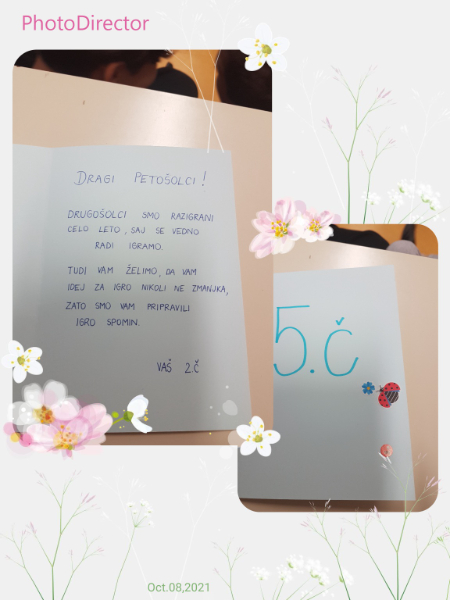 PhotoDirector
DRAGI PETOŠOLCI!
DRUGOŠOLCI SMO RAZIGRANI
CELO LETO, SAJ SE VEDNO
RADI IGRAMO.
TUDI VAM ŽELIMO, DA VAM
IDEJ ZA IGRO NIKOLI NE ZMANJKA,
ZATO SMO VAM PRIPRAVILI
IGRO SPOMIN.
VAŠ 2.Č
5.č
Oct.08,2021